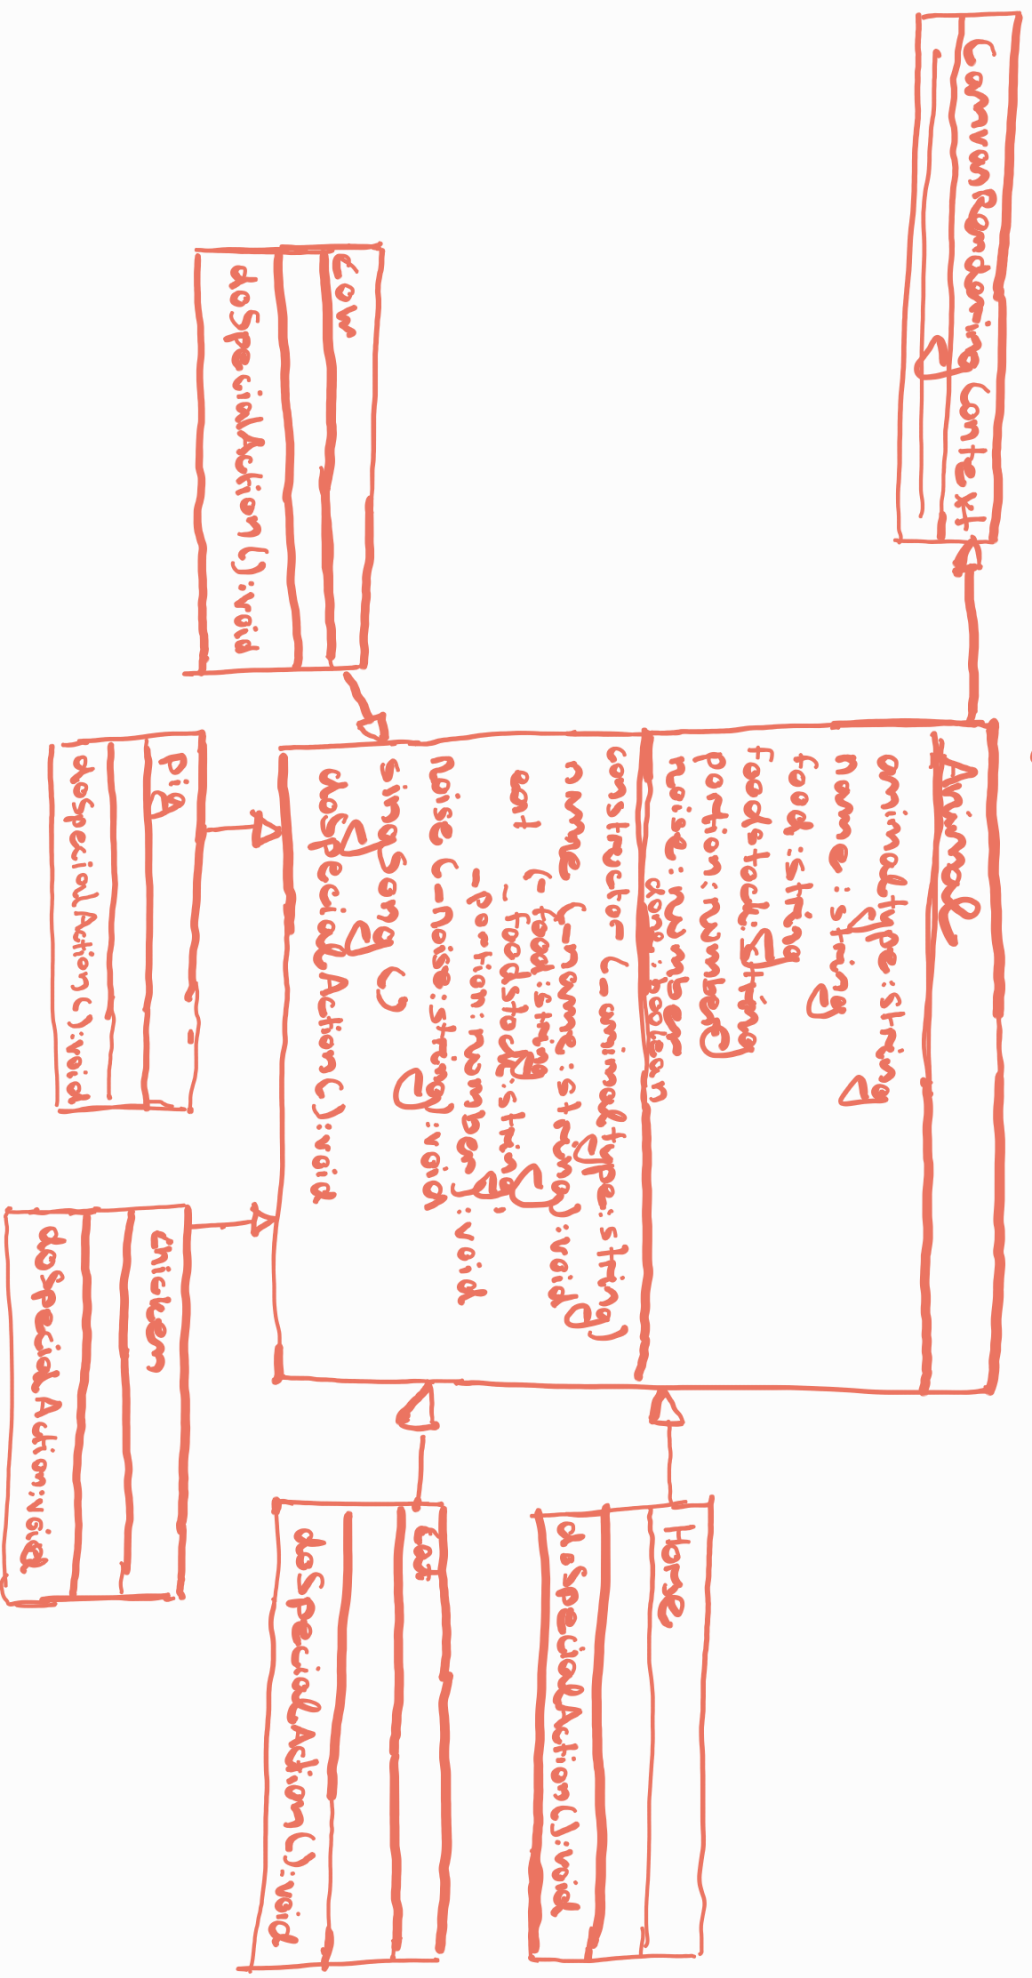 CanvanRendering Context
Animal
animaltype:string
name:string
food:string
foodstock:string
portion:number
noise:number
done:boolean
constructor (_animaltype:string)
name (_name:string):void
eat (_food:string
- foodstock:string
-portion:number):void
noise (_noise:string):void
singSong ()
doSpecialAction():void
Cow
doSpecialAction():void
Pig
dospecialAction():void
Chicken
doSpecialAction:void
Cat
doSpecialAction():void
Horse
doSpecialAction():void